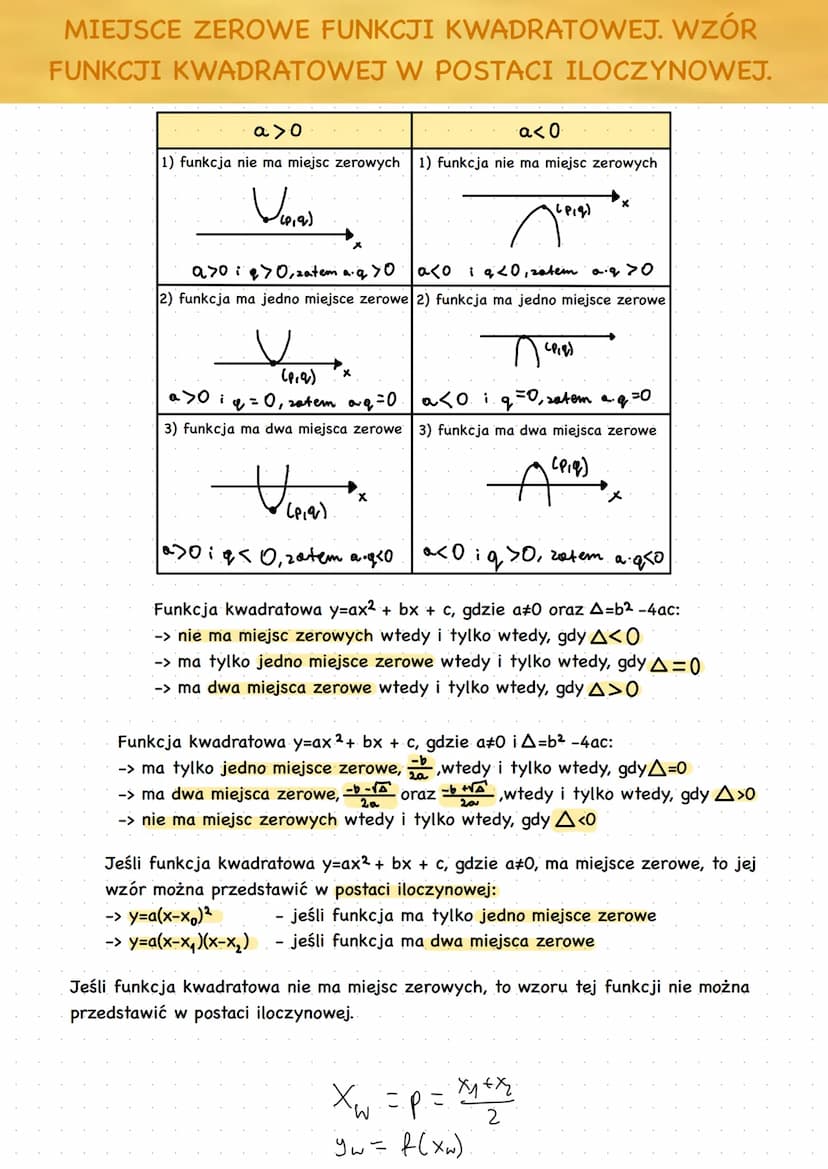 MIEJSCE ZEROWE FUNKCJI KWADRATOWEJ. WZÓR
FUNKCJI KWADRATOWEJ W POSTACI ILOCZYNOWEJ.
a>0
a<0
1) funkcja nie ma miejsc zerowych
(p,q)
x
a>0 i q>0, zatem a·q>0
1) funkcja nie ma miejsc zerowych
(p,q)
x
a<0 i q<0, zatem a·q>0
2) funkcja ma jedno miejsce zerowe
(p,q)
x
a>0 i q=0, zatem a·q=0
2) funkcja ma jedno miejsce zerowe
(p,q)
a<0 i q=0, zatem a·q=0
3) funkcja ma dwa miejsca zerowe
x
(p,q)
a>0 i q<0, zatem a·q<0
3) funkcja ma dwa miejsca zerowe
(p,q)
x
a<0 i q>0, zatem a·q<0
Funkcja kwadratowa y=ax² + bx + c, gdzie a≠0 oraz Δ=b² -4ac:
-> nie ma miejsc zerowych wtedy i tylko wtedy, gdy Δ<0
-> ma tylko jedno miejsce zerowe wtedy i tylko wtedy, gdy Δ=0
-> ma dwa miejsca zerowe wtedy i tylko wtedy, gdy Δ>0
Funkcja kwadratowa y=ax²+ bx + c, gdzie a≠0 i Δ=b² -4ac:
-> ma tylko jedno miejsce zerowe, -b/2a ,wtedy i tylko wtedy, gdy Δ=0
-> ma dwa miejsca zerowe, -b-√Δ/2a oraz -b+√Δ/2a ,wtedy i tylko wtedy, gdy Δ>0
-> nie ma miejsc zerowych wtedy i tylko wtedy, gdy Δ<0
Jeśli funkcja kwadratowa y=ax² + bx + c, gdzie a≠0, ma miejsce zerowe, to jej
wzór można przedstawić w postaci iloczynowej:
-> y=a(x-x₀)² - jeśli funkcja ma tylko jedno miejsce zerowe
-> y=a(x-x₁)(x-x₂) - jeśli funkcja ma dwa miejsca zerowe
Jeśli funkcja kwadratowa nie ma miejsc zerowych, to wzoru tej funkcji nie można
przedstawić w postaci iloczynowej.
x_w = p = x₁+x₂/2
y_w = f(x_w)